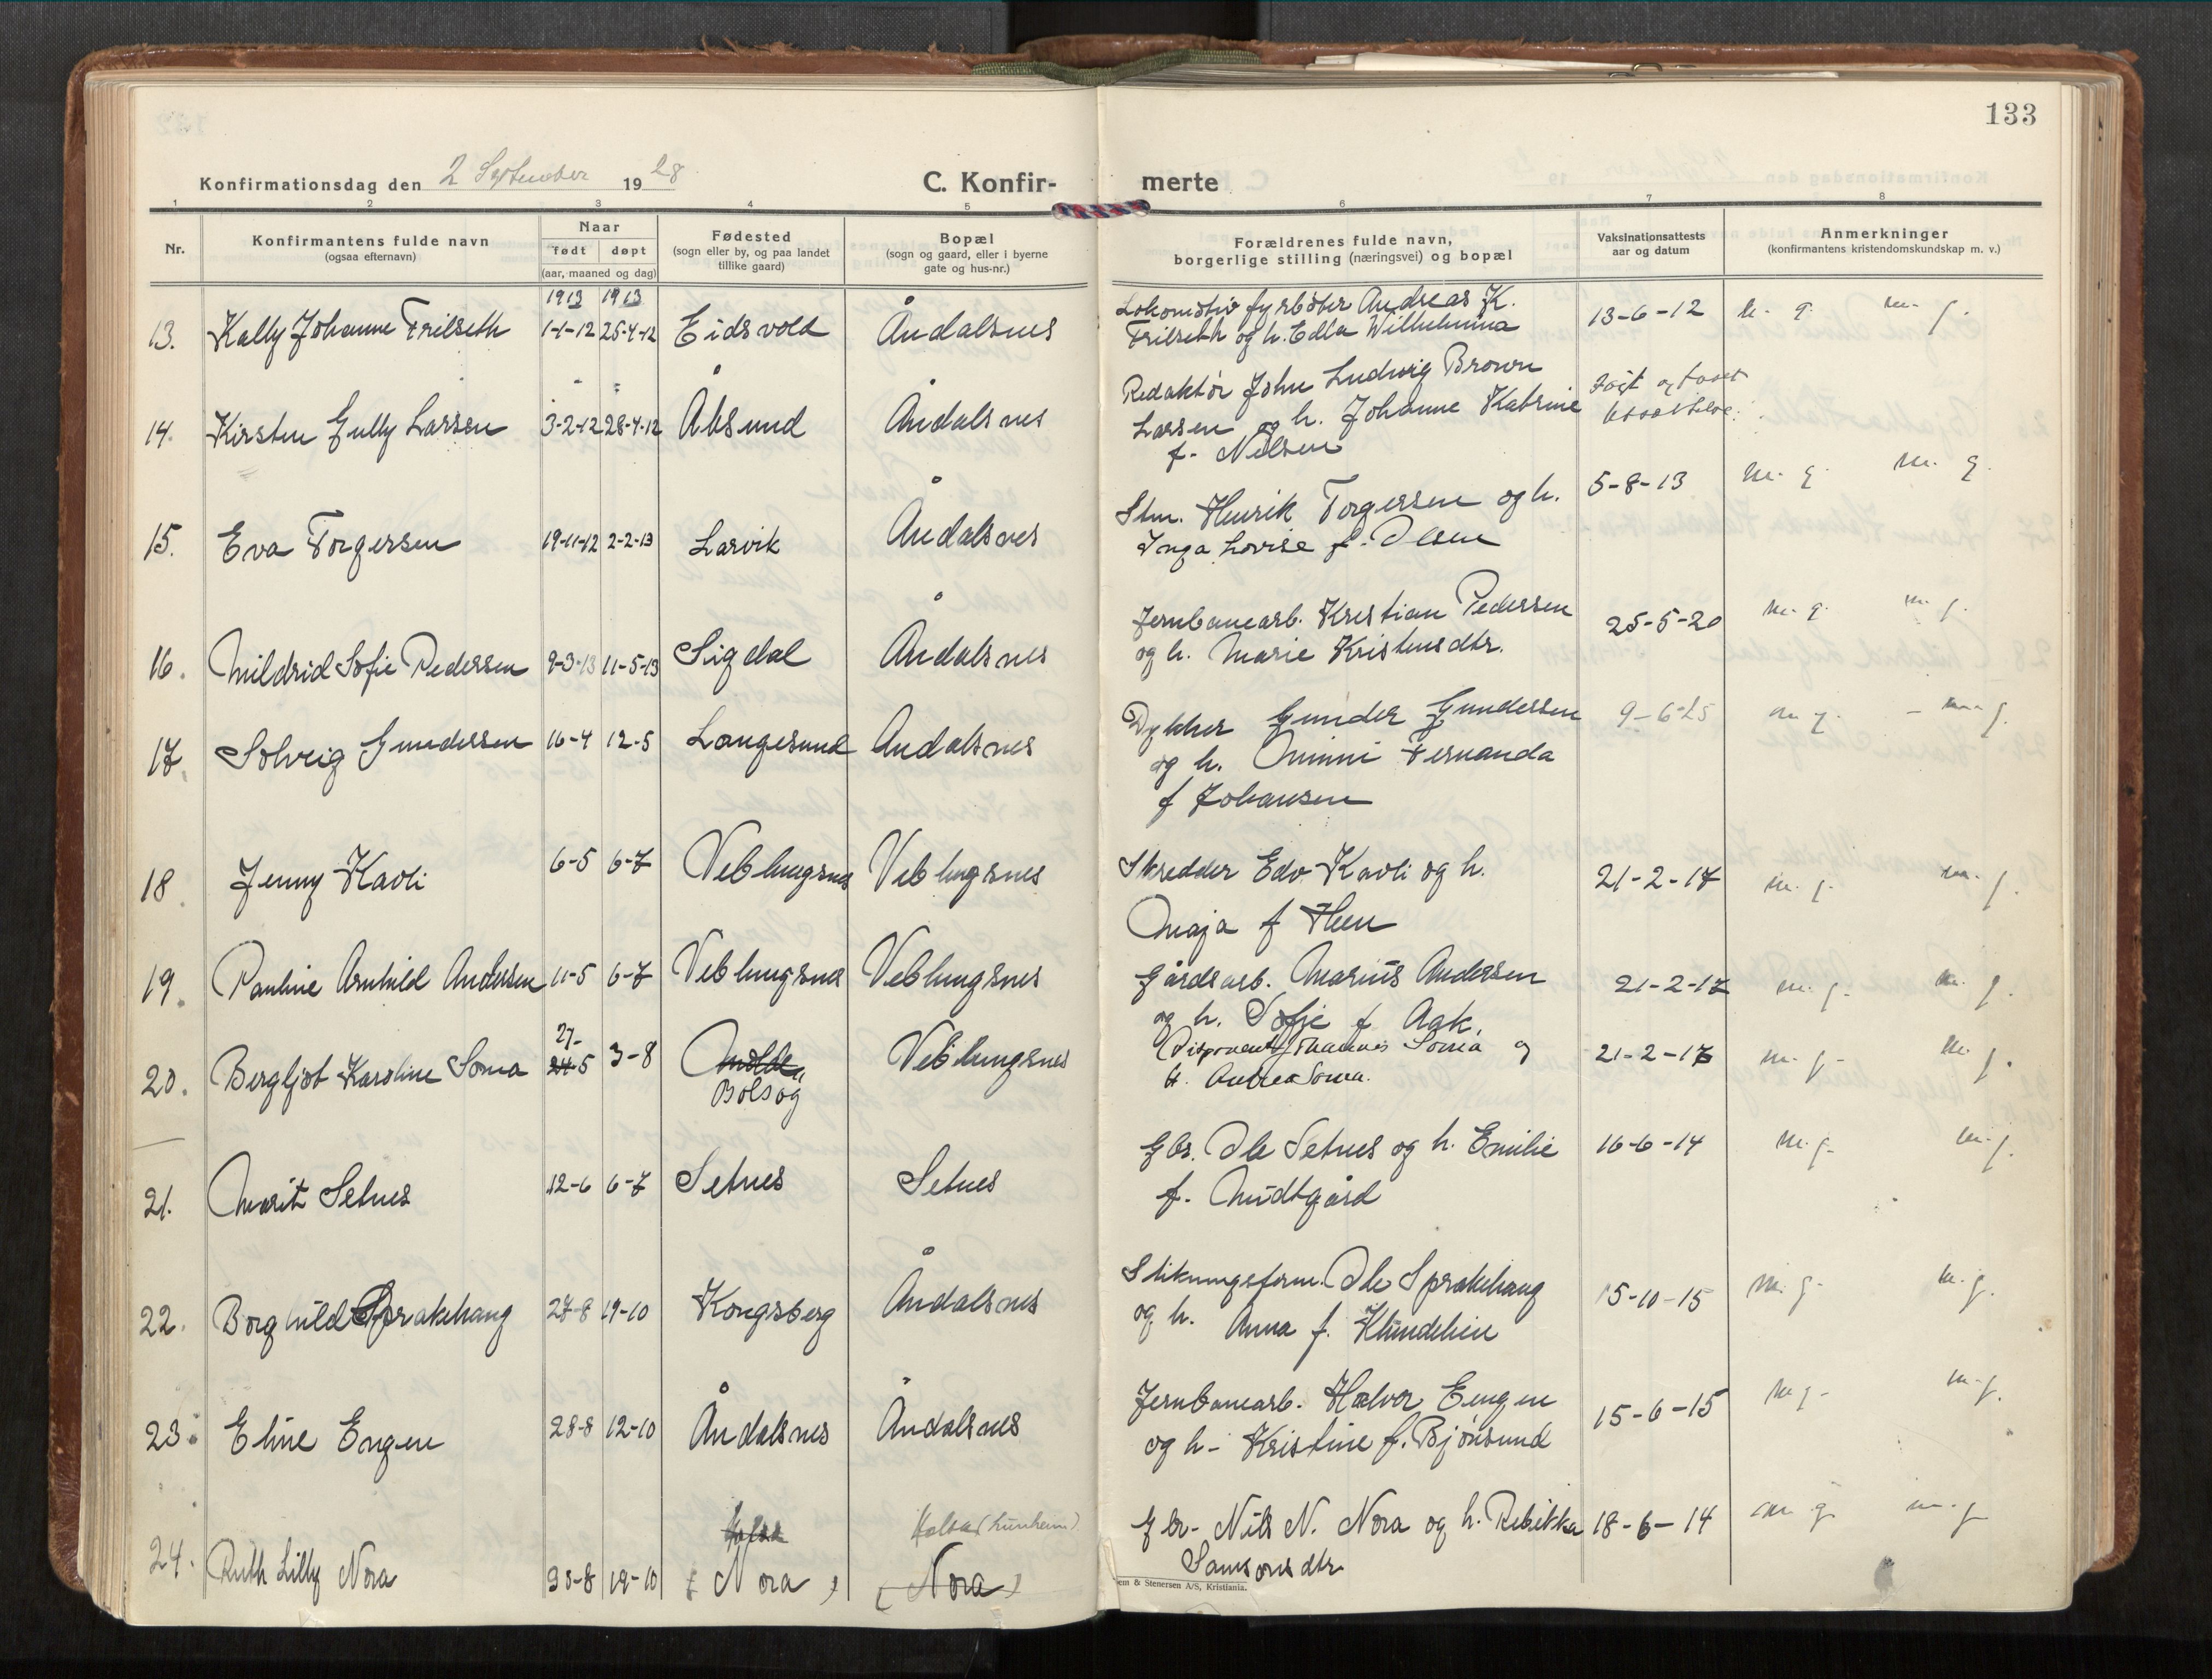 133
Konfirmationsdag den 2 September 1928
C. Konfir- merte
1 2 3 4 5 6 7 8
Nr.
Konfirmantens fulde navn
(ogsaa efternavn)
Naar
født døpt
(aar, maaned og dag)
Fødested
(sogn eller by, og paa landet
tillike gaard)
Bopæl
(sogn og gaard, eller i byerne
gate og hus-nr.)
Forældrenes fulde navn,
borgerlige stilling (næringsvei) og bopæl
Vaksinationsattests
aar og datum
Anmerkninger
(konfirmantens kristendomskundskap m. v.)
1913 1913
13. Kally Johanne Frilseth 1-1-12 25-4-12 Eidsvold Åndalsnes
Lokomotiv fyrbøter Andreas K.
Frilseth og h. Edla Wilhelmina
13-6-12 m. g. m. g.
14. Kirsten Gully Larsen 3-2-12 28-4-12 Ålesund Åndalsnes
Redaktør John Ludwig Brown
Larsen og h. Johanne Katrine
f. Nilsen
15. Eva Torgersen 19-11-12 2-2-13 Larvik Åndalsnes
Stm. Henrik Torgersen og h.
Inga Lovise f. Olsen
5-8-13 m. g. m. g.
16. Mildrid Sofie Pedersen 9-3-13 11-5-13 Sigdal Åndalsnes
Jernbanearb. Kristian Pedersen
og h. Marie Kristensdtr.
25-5-20 m. g. m. g.
17. Solveig Gundersen 16-4 12-5 Langesund Åndalsnes
Dykker Gunder Gundersen
og h. Minni Fernanda
f Johansen
9-6-25 m g. - m. g.
18. Jenny Kavli 6-5 6-7 Veblungsnes Veblungsnes
Skredder Edv. Kavli og h.
Maja f Hen
21-2-17 m. g. m. g.
19. Pauline Arnhild Andersen 11-5 6-7 Veblungsnes Veblungsnes
Gårdsarb. Marius Andersen
og h. Sofie f Aak.
21-2-17 m. g. m. g.
20. Bergljot Karoline Soma 27- 24-5 3-8 Molde Bolsøy Veblungsnes
Disponent Johannes Soma og
h. Andrea Soma.
21-2-17 m. g. m. g.
21. Marit Setnes 12-6 6-7 Setnes Setnes
Gbr. Ole Setnes og h. Emilie
f. Midtgård
16-6-14 m. g. m. g.
22. Borghild Sprakehaug 27-8 19-10 Kongsberg Åndalsnes
Stikningsform. Ole Sprakehaug
og h. Anna f. Klundelien
15-10-15 m. g. m. g.
23. Eline Engen 28-8 12-10 Åndalsnes Åndalsnes
Jernbanearb. Halvor Engen
og h. Kristine f. Bjönsund
15-6-15 m g. m. g.
24. Ruth Lilly Nora 30-8 19-10 Holsa (Nora) Holsa (Lunheim) (Nora)
Gbr. Nils N. Nora og h. Rebekka
Samsonsdtr
18-6-14 m g m. g
em & Stenersen A/S, Kristiania.